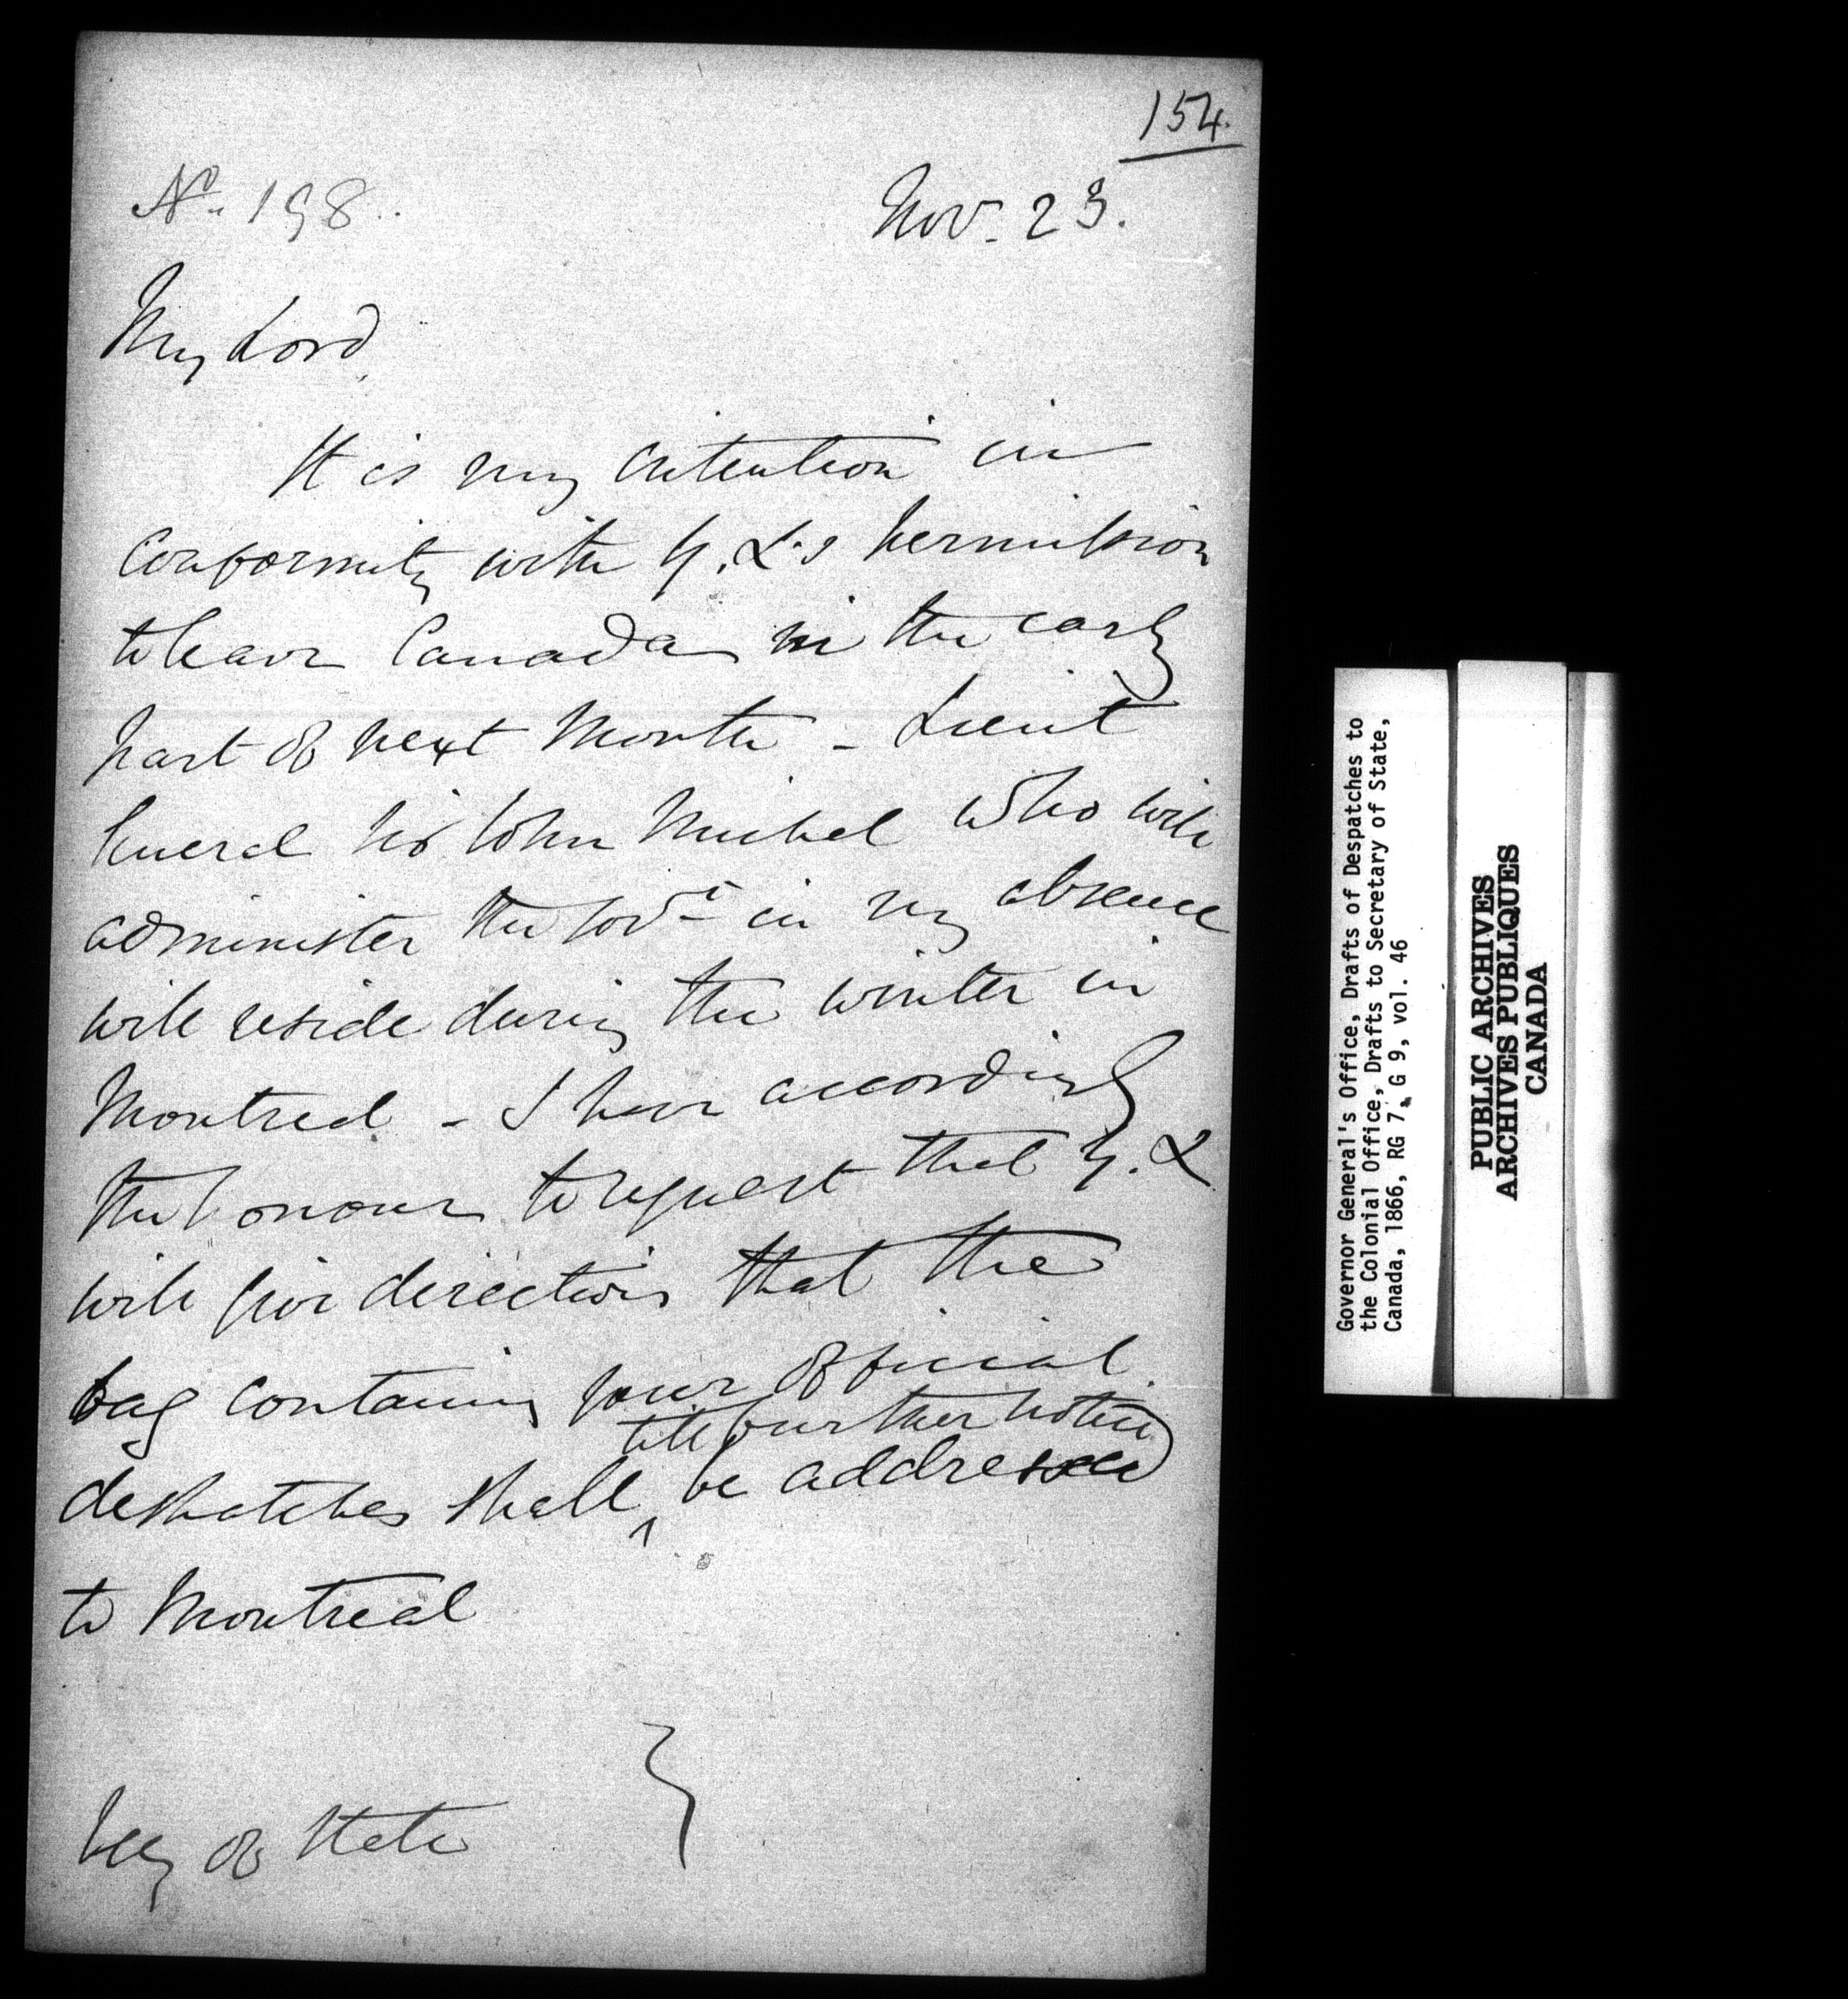 154.
No. 198.
Nov. 23.
My Lord,
It is my intention in
conformity with Y. L's permission
to leave Canada in the early
part of next month - Lieut
General Sir John Michel who will
administer the Govt in my absence
will reside during the winter in
Montreal - I have accordingly
the honour to request that Y. L
will give directions that the
bag containing your official
till further notice
despatches shall ^ be addressed
to Montreal
Secy of State
Governor General's Office, Drafts of Despatches to
the Colonial Office, Drafts to Secretary of State,
Canada, 1866, RG 7, G 9, vol. 46
PUBLIC ARCHIVES
ARCHIVES PUBLIQUES
CANADA